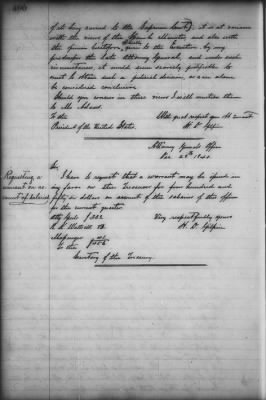 400
of it being carried to the Supreme Court; it is at variance
with the views of the Minister and also with
the opinion heretofore given to the Executive by my
predecessor the late Attorney General, and under such
circumstances, it would seem scarcely justifiable to
such a judicial decision, as can alone
be considered conclusive.
Should you concur in these views I will mention them
to Mr
To the With great respect your Ob servant
President of the United States. H. D. Gilpin
Attorney General's Office
1840
Requesting a
warrant on ac
count of salaries
Sir,
I have to request that a warrant may be issued in
my favor on the Treasurer for four hundred and
fifty dollars on account of the salaries of this office
for the current quarter
Atty Genl Very respectfully yours
H. D. Gilpin
Messenger
To the
Secretary of the Treasury.